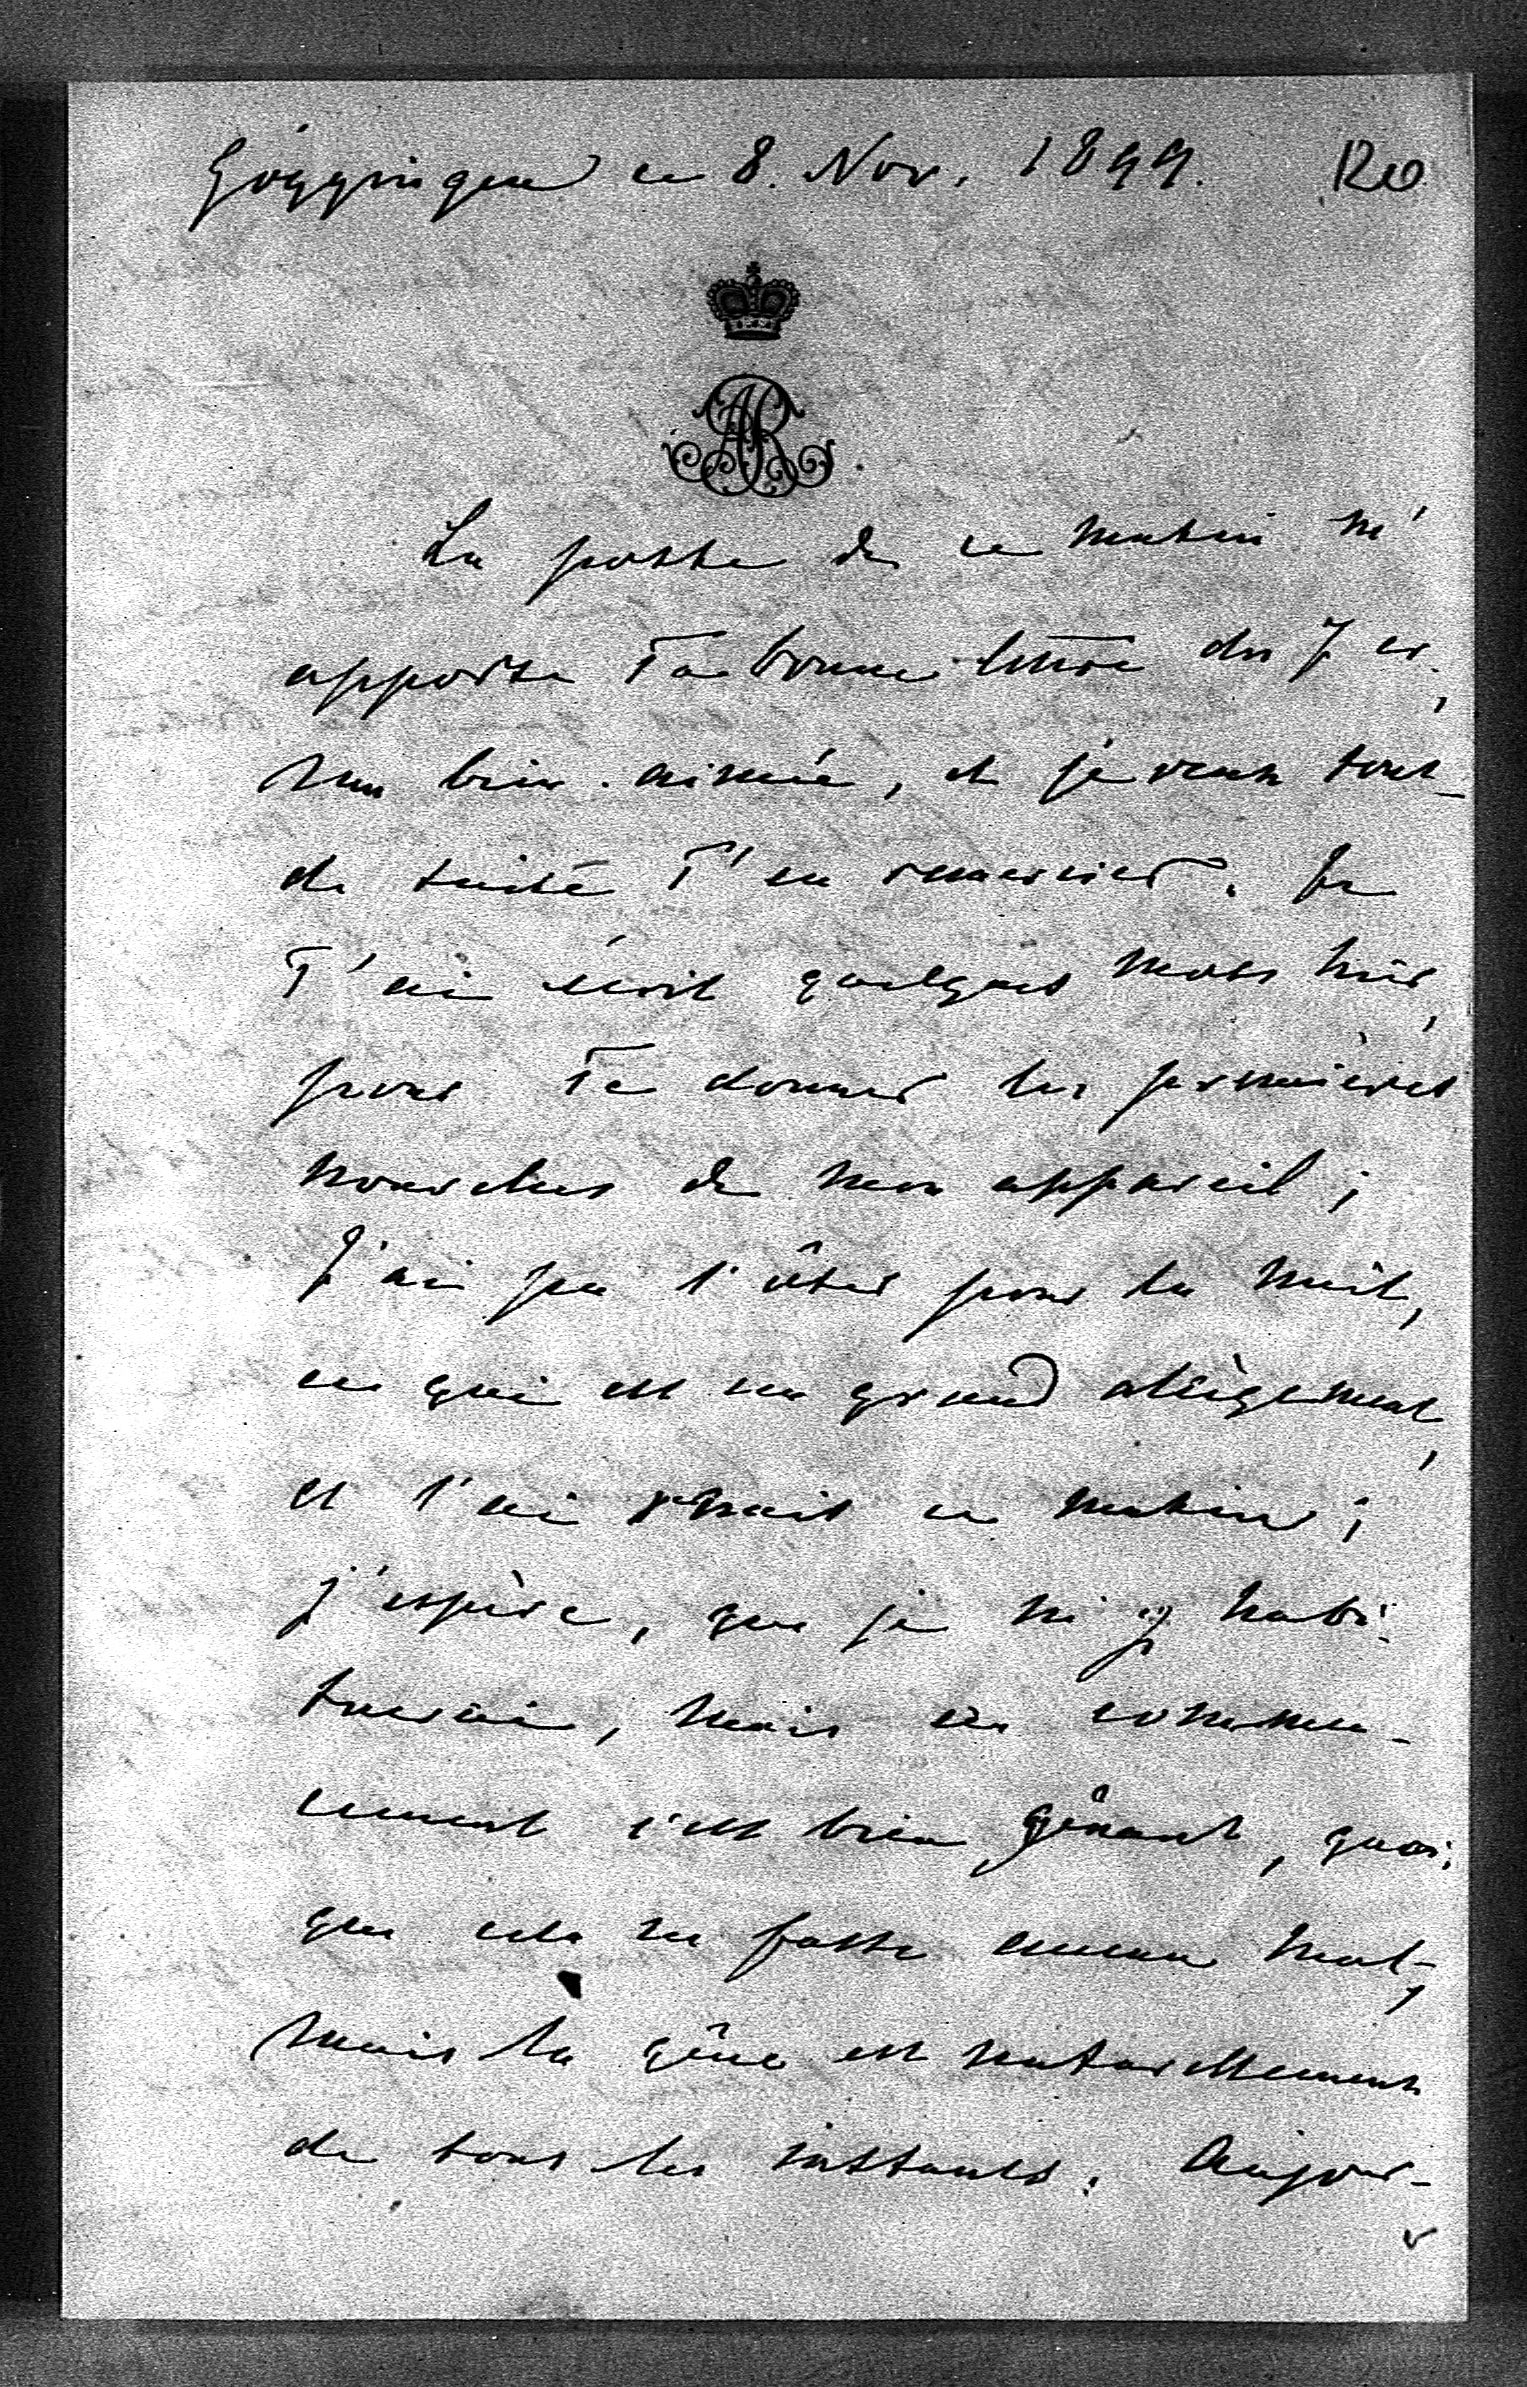 Göggingen ce 8. Nov. 1899. 120
AR
La poste de ce matin m'
apporte Ta bonne lettre du 7 cr.,
ma bien-aimée, et je veux tout-
de suite T'en remercier. Je
T'ai écrit quelques mots hier,
pour Te donner les premières
nouvelles de mon appareil;
J'ai pu l'ôter pour la nuit,
ce qui est un grand allègement,
et l'ai remit ce matin;
j'espère, que je m'y habi-
tuerai, mais au commen-
cement c'est bien gênant, quoi-
que cela ne fasse aucun mal,
mais la gêne est naturellement
de tous les instants. Aujour-